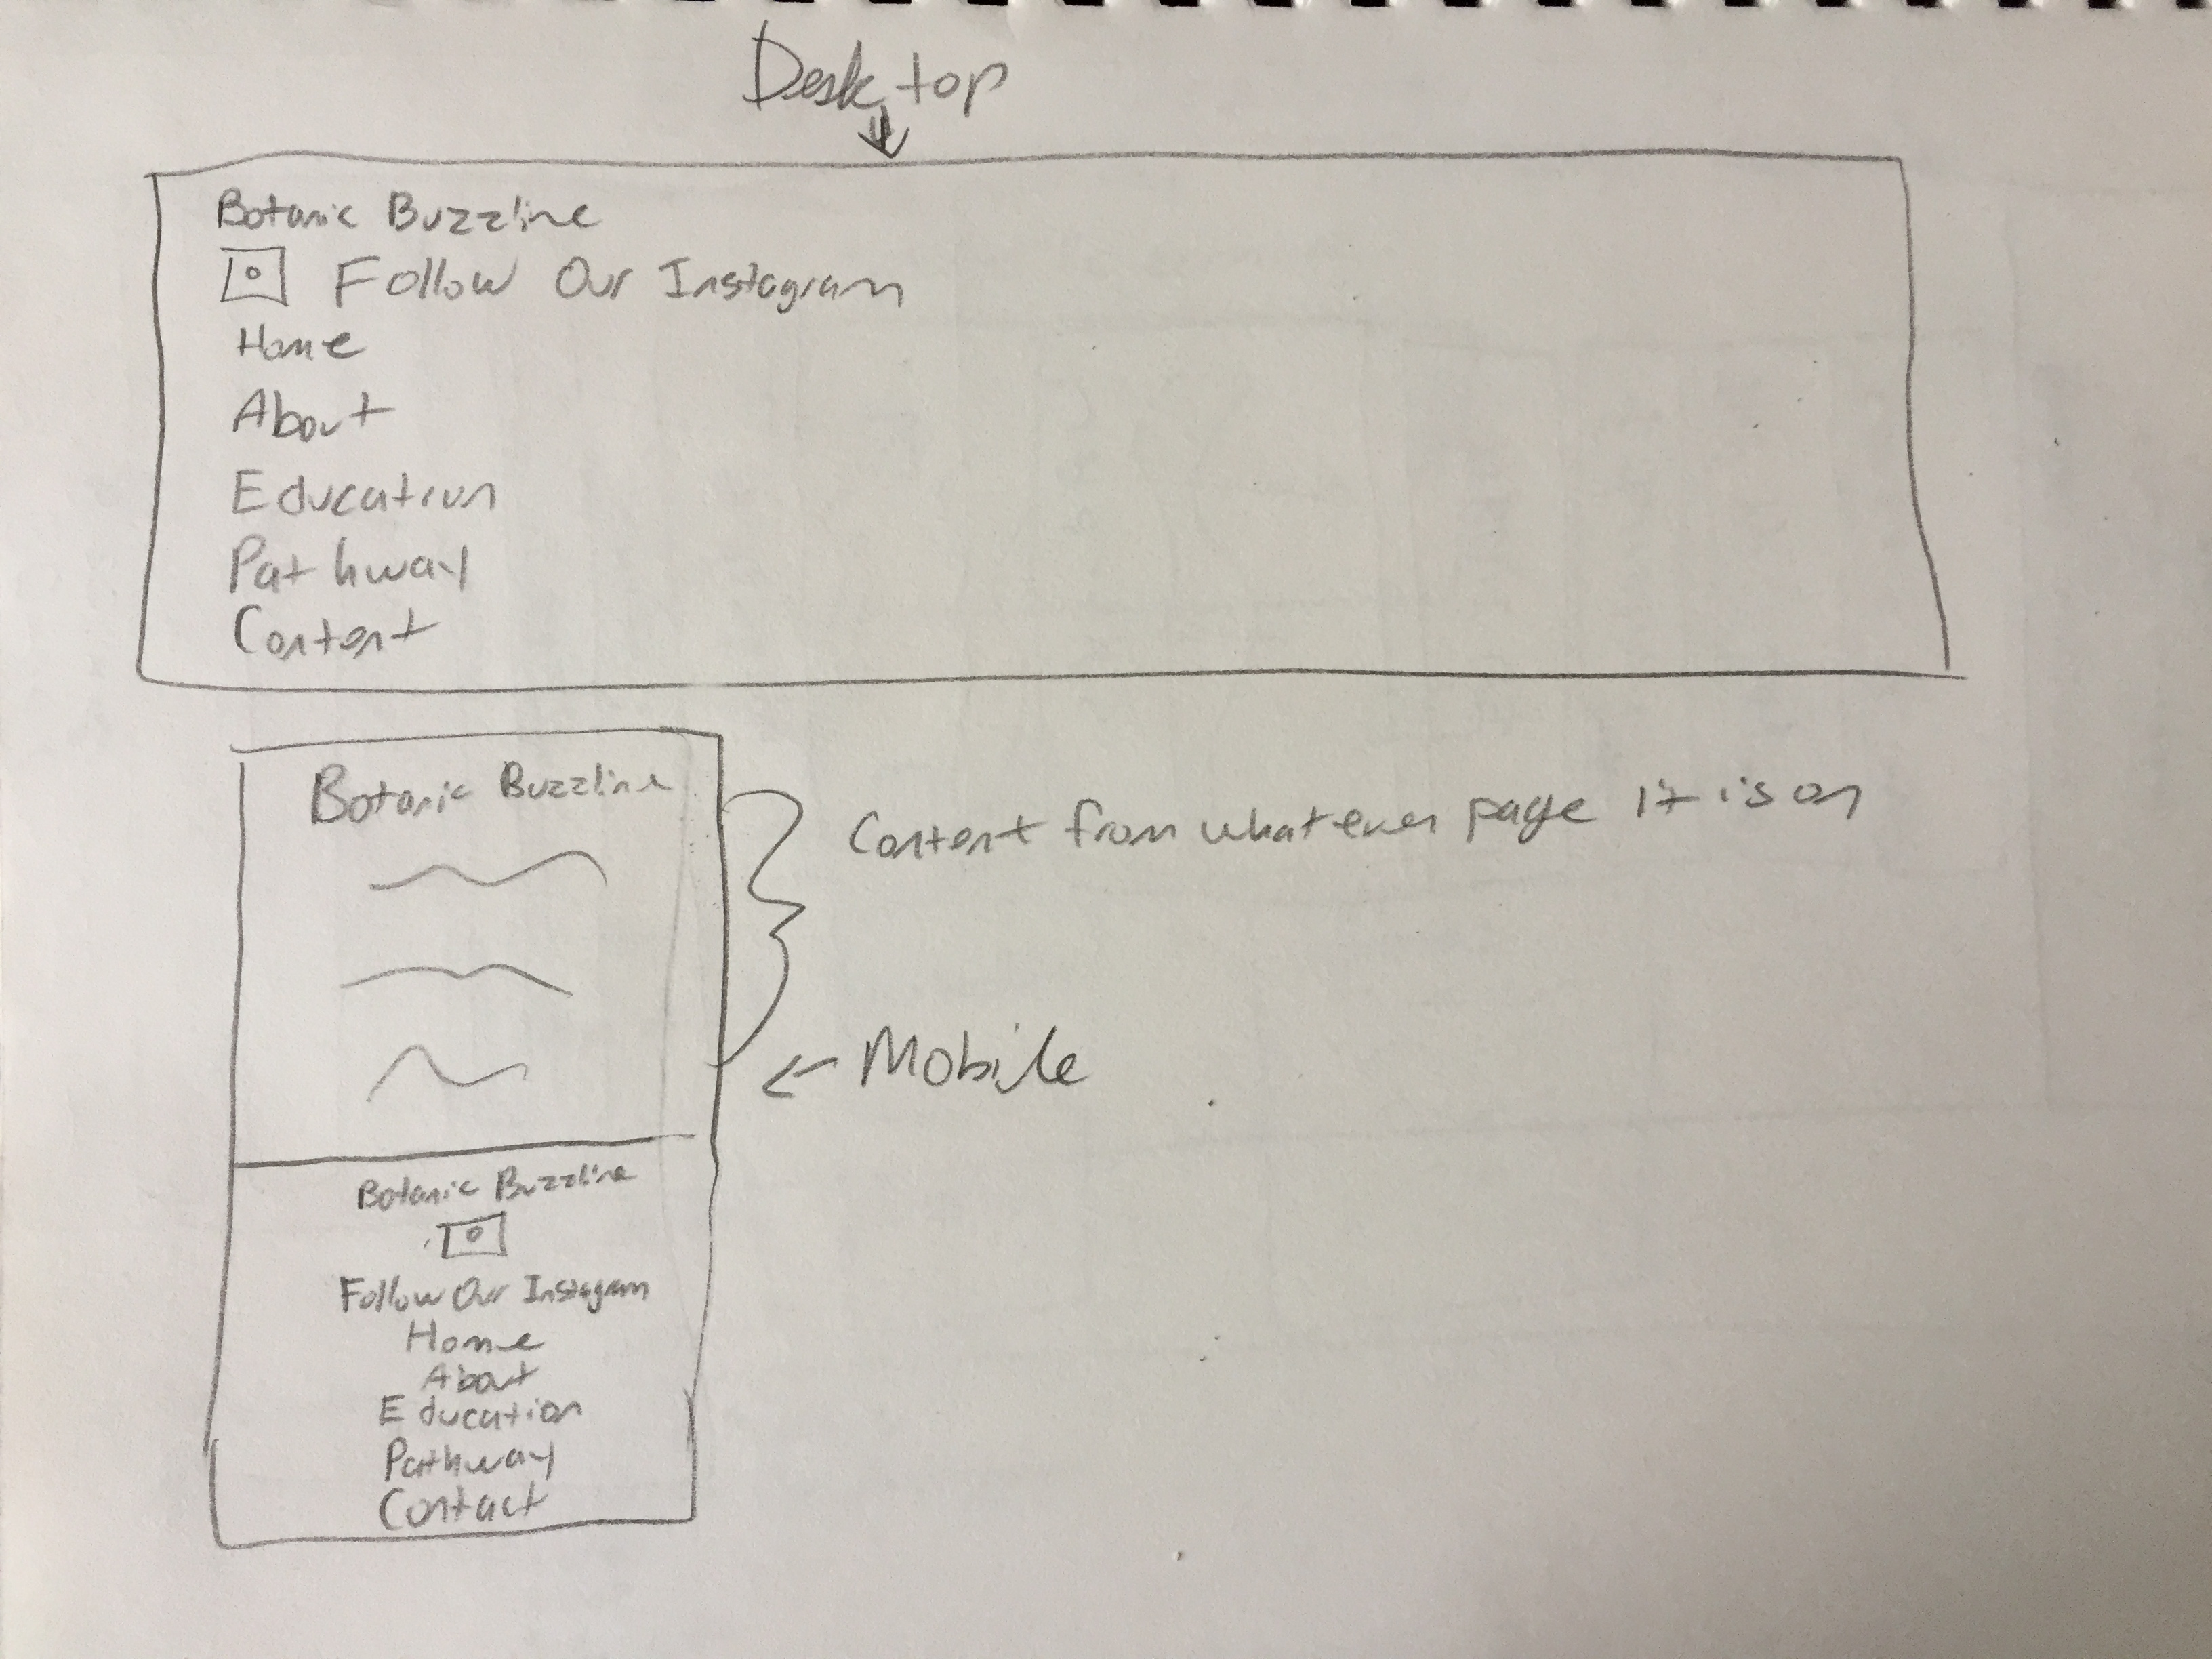 Desktop
Botanic Buzzline
Follow Our Instagram
Home
About
Education
Pathway
Content
Botanic Buzzline
Content from whatever page it is on
Mobile
Botanic Buzzline
Follow Our Instagram
Home
About
Education
Pathway
Contact